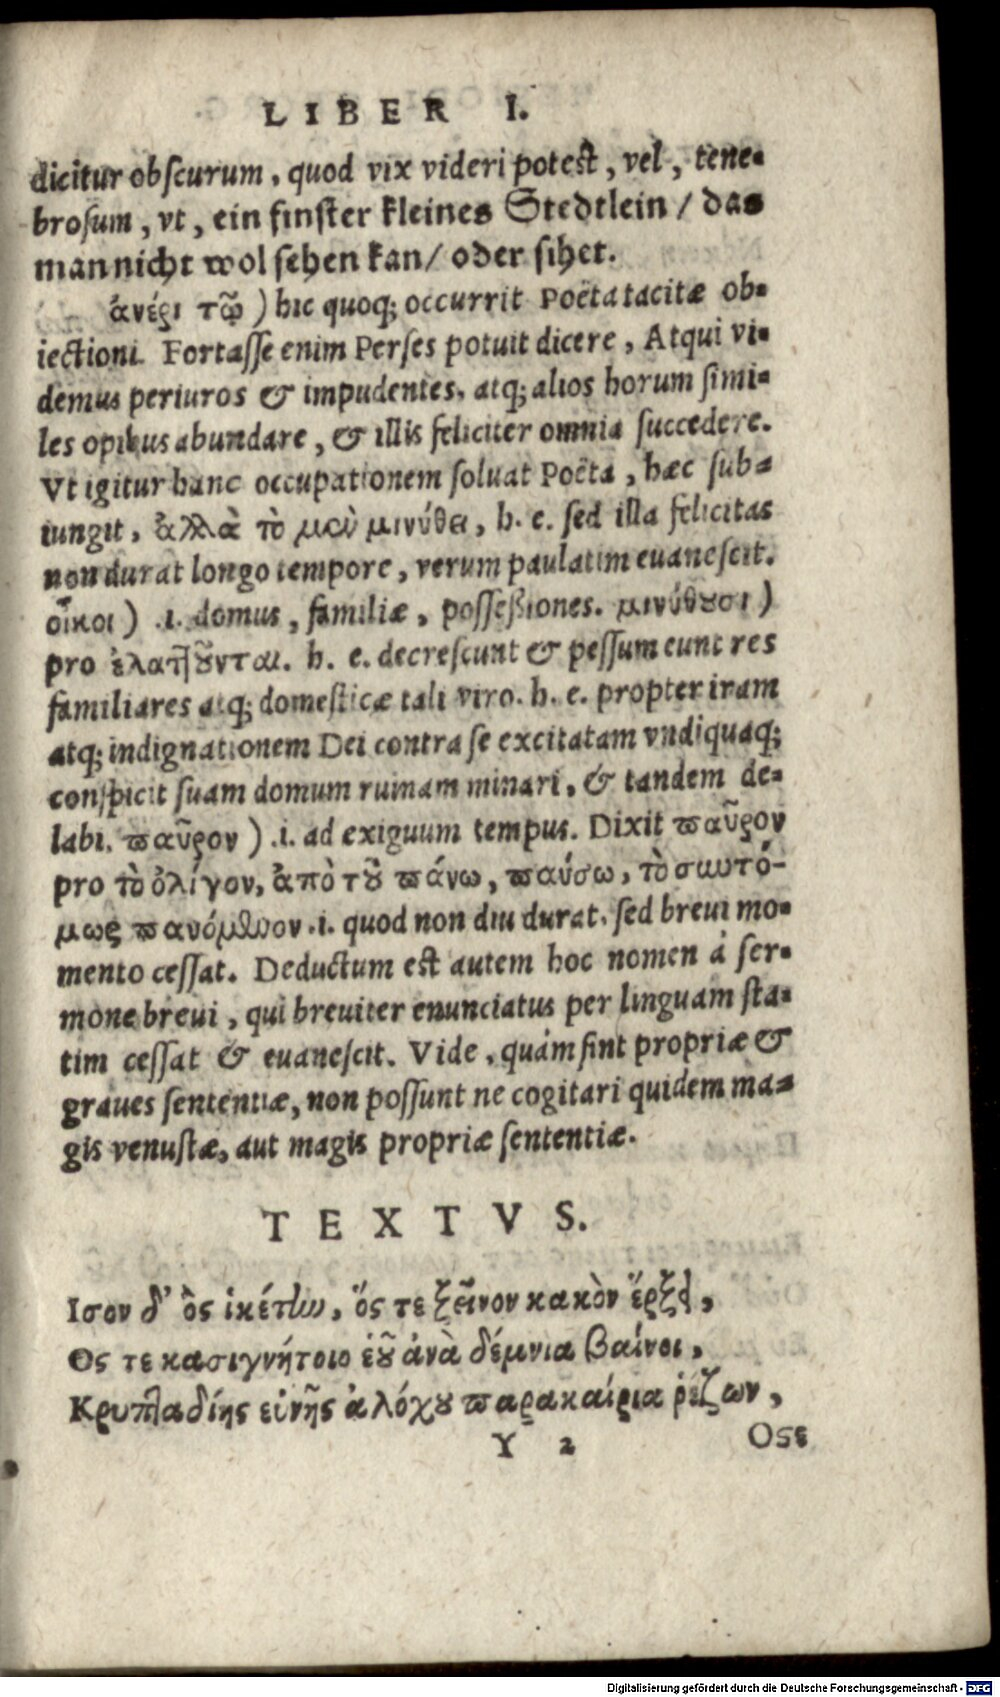 LIBER I.
dicitur obscurum, quod vix videri potest, vel, tene-
brosum, vt, ein finster kleines Stedtlein / das
man nicht wol sehen kan / oder sihet.
ἀνέρι τῷ) hic quoq; occurrit Poëta tacitæ ob-
iectioni. Fortasse enim Perses potuit dicere, Atqui vi-
demus periuros & impudentes, atq; alios horum simi-
les opibus abundare, & illis feliciter omnia succedere.
Vt igitur hanc occupationem soluat Poëta, hæc sub-
iungit, ἀλλὰ τὸ μὲν μινύθει, h. e. sed illa felicitas
non durat longo tempore, verum paulatim euanescit.
οἶκοι) .i. domus, familiæ, possessiones. μινύθουσι)
pro ἐλαττοῦνται. h. e. decrescunt & pessum eunt res
familiares atq; domesticæ tali viro. h. e. propter iram
atq; indignationem Dei contra se excitatam vndiquaq;
conspicit suam domum ruinam minari, & tandem de-
labi. παῦρον) .i. ad exiguum tempus. Dixit παῦρον
pro τὸ ὀλίγον, ἀπὸ τοῦ πάνω, παύσω, τὸ σωτό-
μως πανόμενον .i. quod non diu durat, sed breui mo-
mento cessat. Deductum est autem hoc nomen à ser-
mone breui, qui breuiter enunciatus per linguam sta-
tim cessat & euanescit. Vide, quàm sint propriæ &
graues sententiæ, non possunt ne cogitari quidem ma-
gis venustæ, aut magis propriæ sententiæ.
TEXTVS.
Ισον δ' ὃς ἱκέτην, ὅς τε ξεῖνον κακὸν ἔρξει,
Ος τε κασιγνήτοιο ἑοῦ ἀνὰ δέμνια βαίνοι,
Κρυπταδίης εὐνῆς ἀλόχου παρακαίρια ῥέζων,
Y 2 Οςε
Digitalisierung gefördert durch die Deutsche Forschungsgemeinschaft - DFG